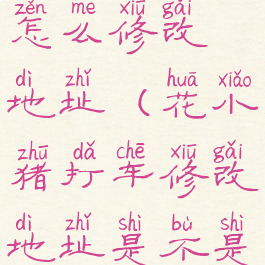 zěn me xiū gǎi
怎么修改
dì zhǐ huā xiǎo
地址(花小
zhū dǎ chē xiū gǎi
猪打车修改
dì zhǐ shì bù shì
地址是不是